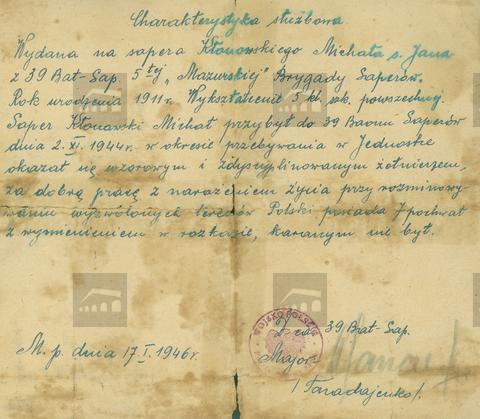 Charakterystyka służbowa
Wydana na sapera Kłonowskiego Michała s. Jana
z 39 Bat-Sap. 5tej „Mazurskiej" Brygady Saperów.
Rok urodzenia 1911 r. Wykształcenie 5 kl. szk. powszechnej.
Saper Kłonowski Michał przybył do 39 Baonu Saperów
dnia 2.XI.1944r. w okresie przebywania w Jednostce
okazał się wzorowym i zdyscyplinowanym żołnierzem,
za dobrą pracę z narażeniem życia przy rozminowy-
waniu wyzwolonych terenów Polski posiada 7 pochwał
z wymienieniem w rozkazie, karanym nie był.
39 Bat-Sap.
M.p. dnia 17.I.1946r.
Major
/Taradajenko/.
WOJSKO POLSKIE